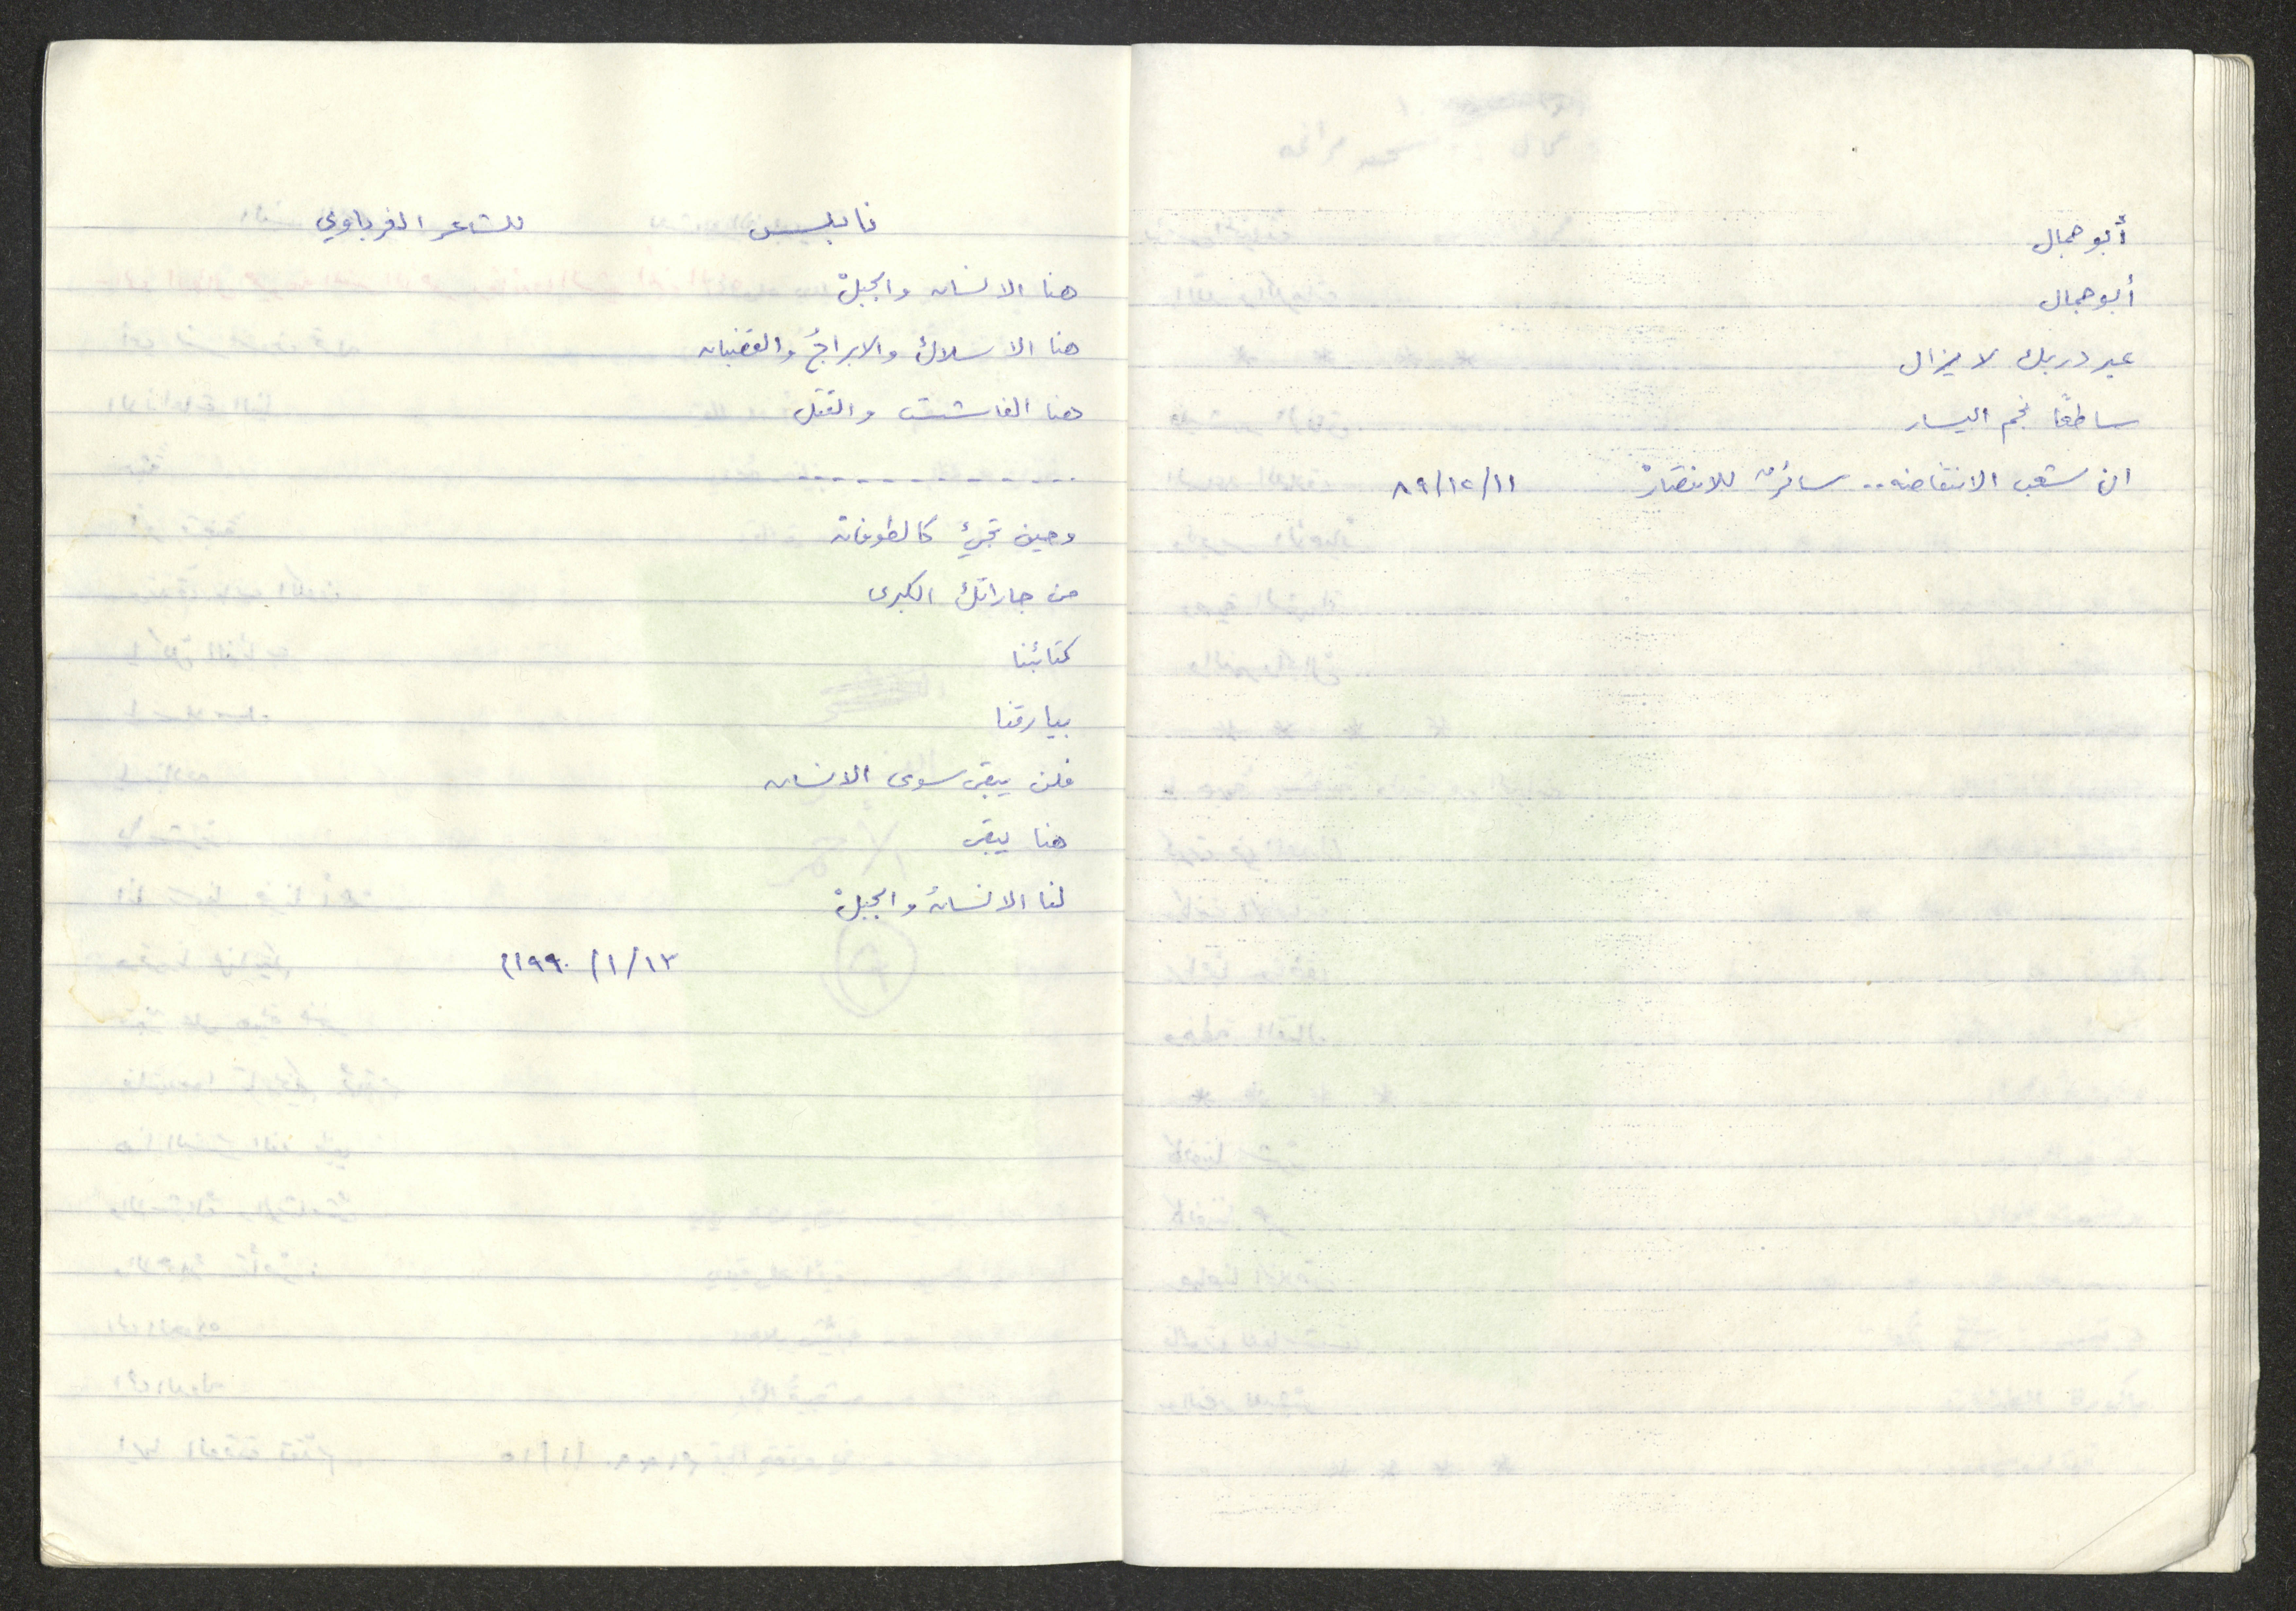 أبو جمال
أبو جمال
عبر دربك لا يزال
ساطعًا نجم اليسار
ان شعب الانتفاضه.. سائرٌ للانتصارْ ٨٩/١٢/١١
نابلس للشاعر الغرباوي
هنا الانسان والجبلْ
هنا الاسلاكُ والابراجُ والقضبان
هنا الفاشست والقتل
- - - - - - - - - - - - - -
وحين تجيءُ كالطوفان
من جاراتك الكبرى
كتائبنا
بيارقنا
فلن يبقى سوى الانسان
هنا يبقى
لنا الانسانُ والجبلْ
١٣/١/١٩٩٠م